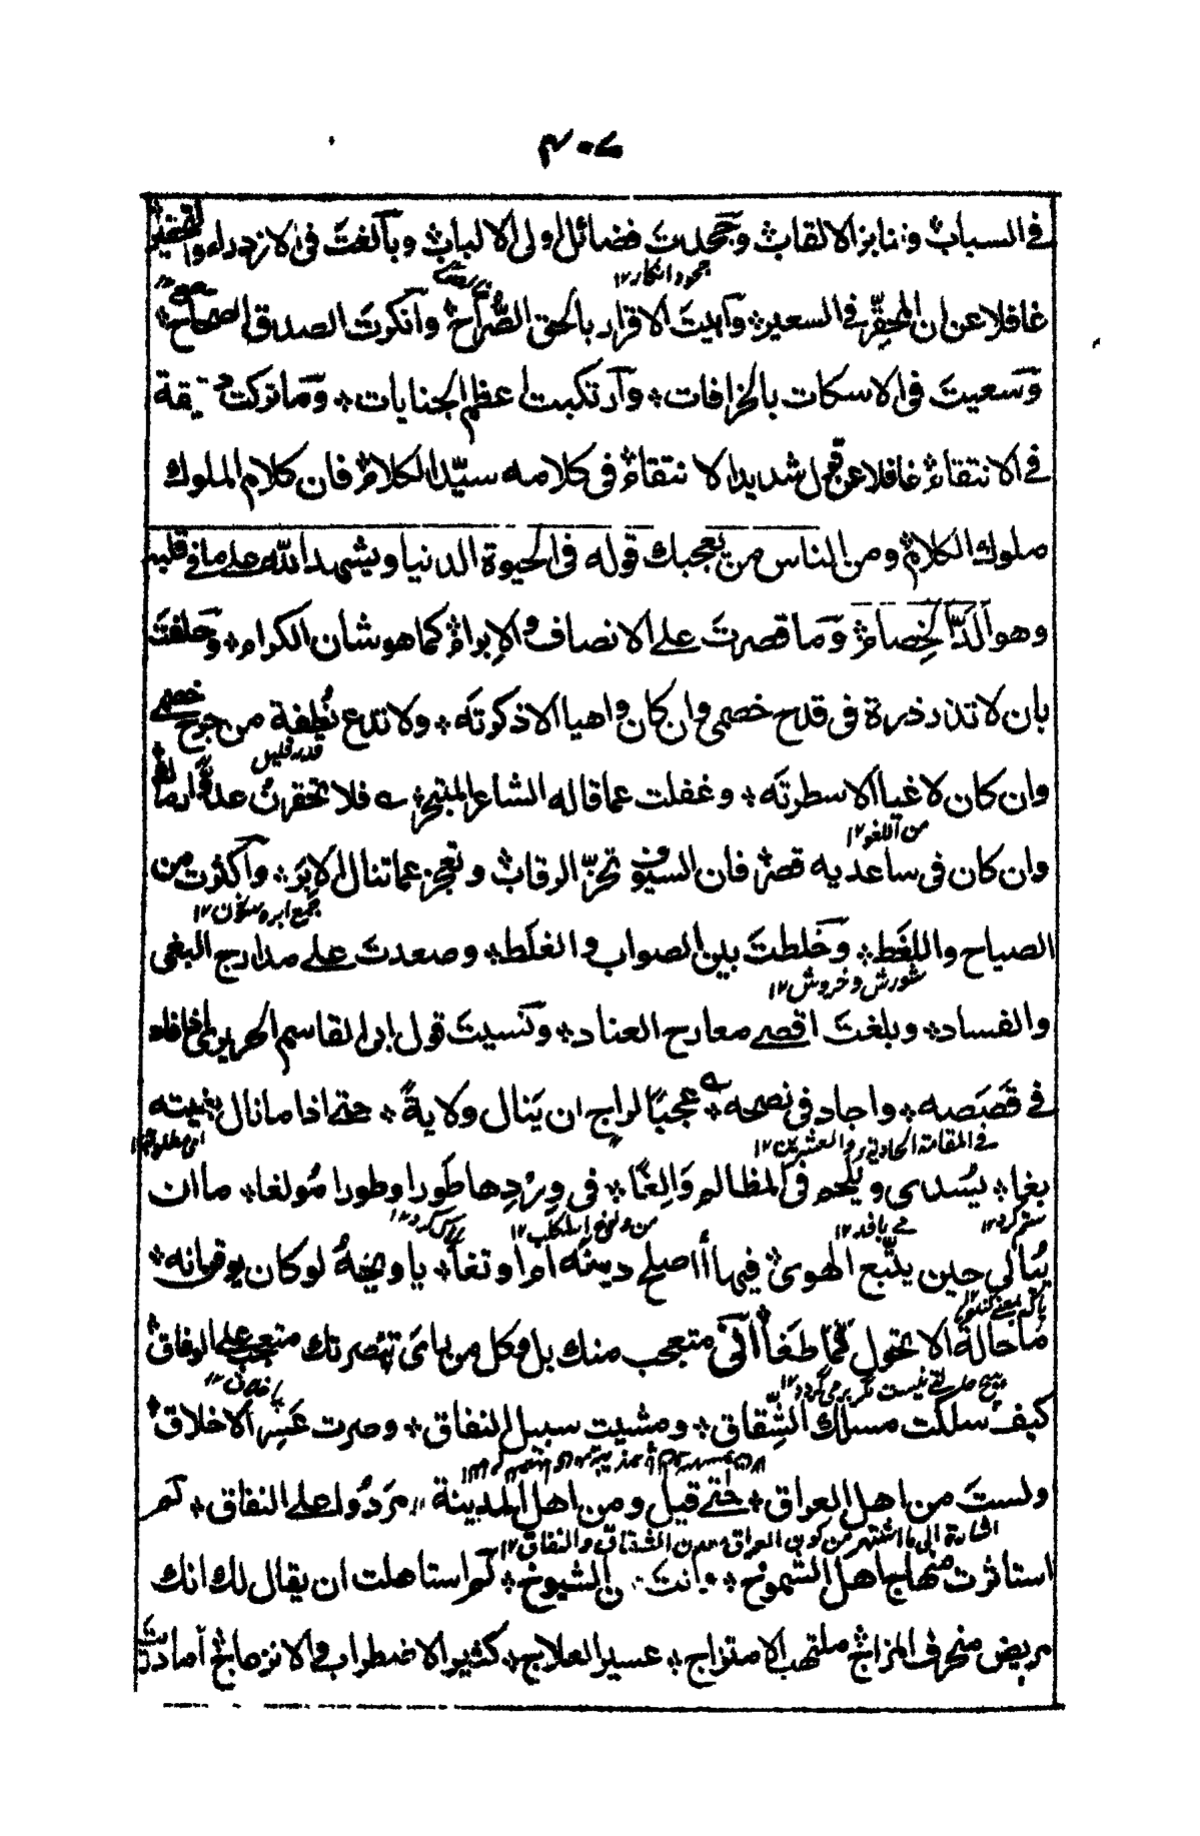 ٤٠٧
في السباب وتنابز الالقاب وجحدت فضائل اولى الالباب وبالغت في الازدراء والتحقير
جحود انكار ١٢
غافلا عن ان المحقر في السعير وابيت الاقرار بالحق الصراح وانكرت الصدق الصحاح
وسعيت في الاسكات بالخرافات وارتكبت اعظم الجنايات وما تركت دقيقة
في الانتقاء غافلا عن شديد الانتقام في كلامه سيد الكلام فان كلام الملوك
ملوك الكلام ومن الناس من يعجبك قوله في الحيوة الدنيا ويشهد الله على ما في قلبه
وهو الد الخصام وما قصرت على الانصاف والابرام كما هو شان الكرام وحلفت
بان لا تذر ذرة في قدح خصمى وان كان واهيا الا ذكرته ولا تدع نطفة من جرح خصمى
قدر قليل
وان كان لاغيا الا سطرته وغفلت عما قاله الشاعر المتبحر فلا تحقرن عدوا رماك
من اللغو ١٢
وان كان في ساعديه قصر فان السيوف تحز الرقاب وتعجز عما تنال الابر واكثرت من
جمع ابره سوزن ١٢
الصياح واللغط وخلطت بين الصواب والغلط وصعدت على مدارج البغى
شورش وخروش ١٢
والفساد وبلغت اقصى معارج العناد ونسيت قول ابى القاسم الحريرى اذا فاد
في قصصه واجاد في نصحه عجبا لراج ان ينال ولاية حتى اذا ما نال بغيته
في المقامة الحادية والعشرين ١٢
بغا يسدى ويلحم في المظالم والغا في وردها طورا وطورا مولغا ما ان
من ولوغ الكلب ١٢
يبالى حين يتبع الهوى فيها أاصلح دينه ام اوتغا يا ويحه لو كان يوقن انه
ما حالة الا تحول لما طغا انى متعجب منك بل وكل من باى تبصرتك متعجب على الوفاق
هيچ حالتى نيست مگر برمى گردد ١٢
كيف سلكت مسلك الشقاق ومشيت سبيل النفاق وصرت عسر الاخلاق
ولست من اهل العراق حتى قيل ومن اهل المدينة مردوا على النفاق كم
اشارة الى ما اشتهر من كون العراق معدن الشقاق والنفاق ١٢
استاثرت منهاج اهل الشموخ وانت من الشيوخ كم استاهلت ان يقال لك انك
مريض منحرف المزاج ملتهب الامتزاج عسير العلاج كثير الاضطراب والانزعاج اما دريت